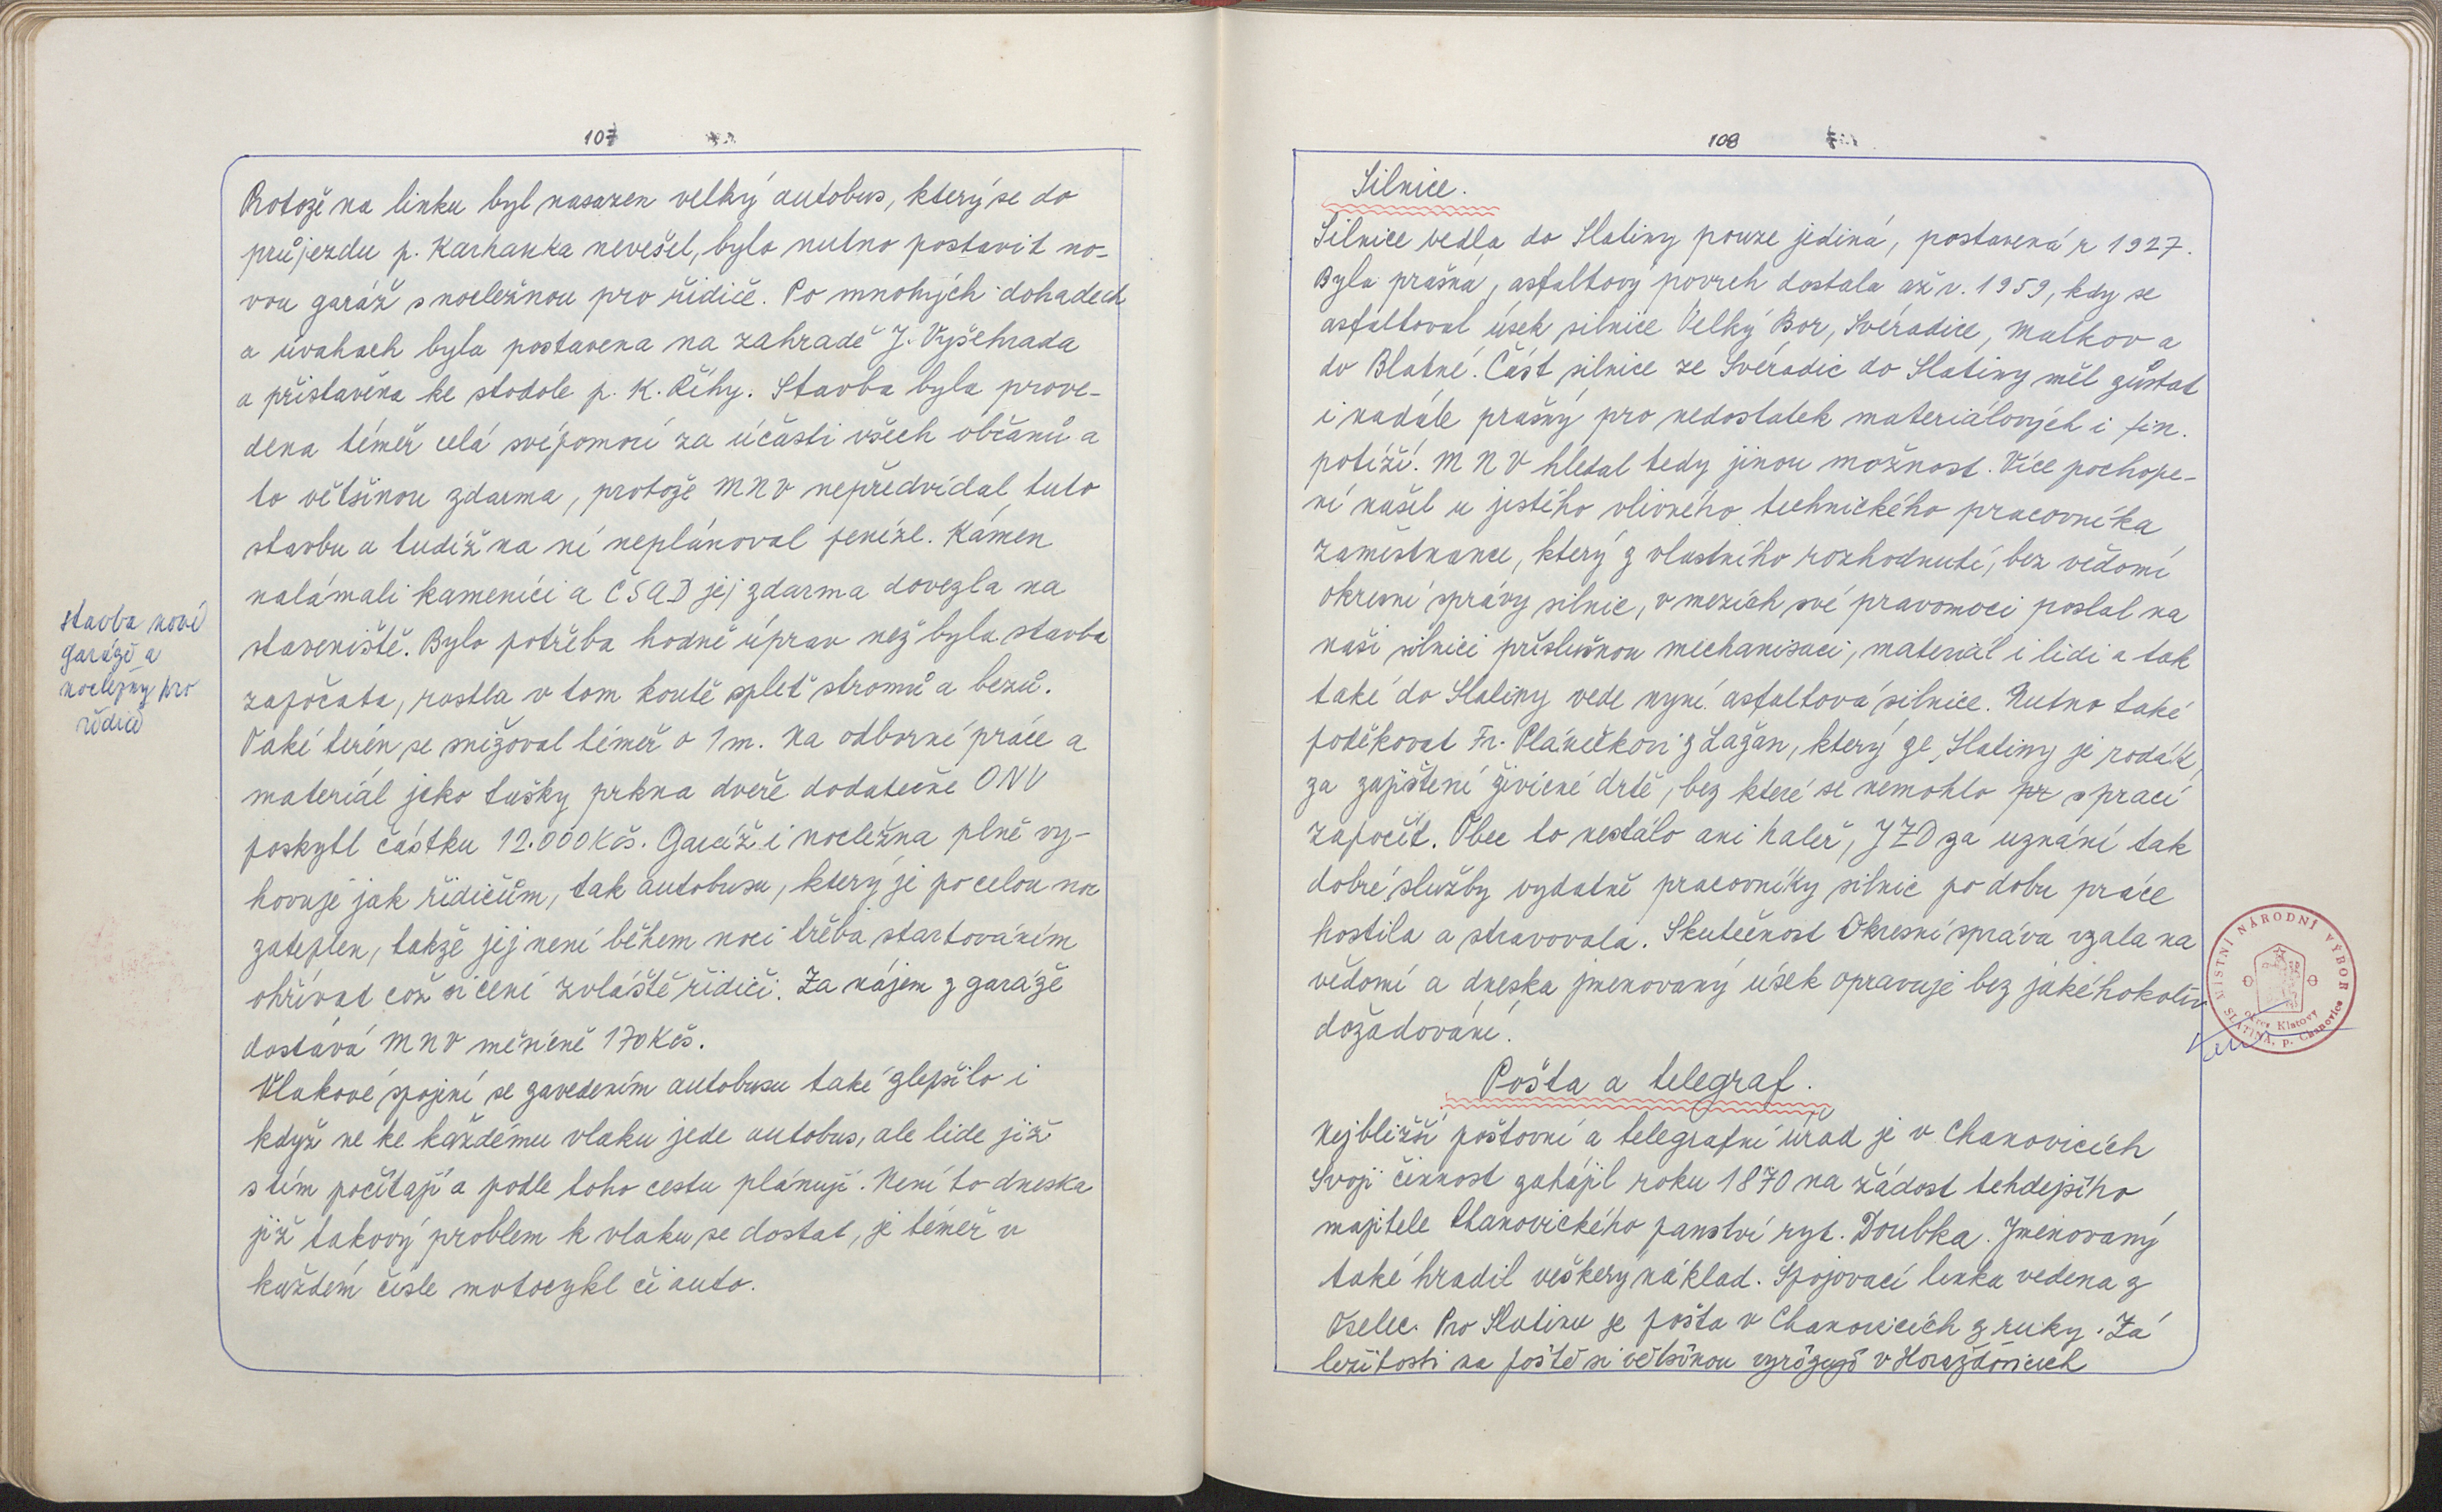 107
Protože na linku byl nasazen velký autobus, který se do
průjezdu p. Karhanka nevešel, bylo nutno postavit no-
vou garáž s nocležnou pro řidiče. Po mnohých dohadech
a úvahach byla postavena na zahradě J. Vyšehrada
a přistavěna ke stodole p. K. Říhy. Stavba byla prove-
dena téměř celá svépomocí za účasti všech občanů a
to většinou zdarma, protože MNV nepředvídal tuto
stavbu a tudíž na ní neplánoval peníze. Kámen
nalámali kameníci a ČSAD jej zdarma dovezla na
staveniště. Bylo potřeba hodně úprav než byla stavba
započata, rostla v tom koutě spleť stromů a bezů.
Také terén se snižoval téměř o 1 m. Na odborné práce a
materiál jako tašky prkna dveře dodatečně ONV
poskytl částku 12.000 Kčs. Garáž i nocležna plně vy-
hovuje jak řidičům, tak autobusu, který je po celou noc
zateplen, takže jej není během noci třeba startováním
ohřívat což si cení zvláště řidiči. Za nájem z garáže
dostává MNV měsíčně 170 Kčs.
Vlakové spojní se zavedením autobusu také zlepšilo i
když ne ke každému vlaku jede autobus, ale lide již
s tím počítají a podle toho cestu plánují. Není to dneska
již takový problem k vlaku se dostat, je téměř v
každém čísle motocykl či auto.
stavba nové
garáže a
nocležny pro
řidiče
108
Silnice.
Silnice vedla do Slatiny pouze jediná, postavená r 1927.
Byla prašná, asfaltový povrch dostala až v. 1959, kdy se
asfaltoval úsek silnice Velký Bor, Svéradice, Malkov a
do Blatné. Část silnice ze Svéradic do Slatiny měl zůstat
i nadále prašný pro nedostatek materiálových i fin.
potíží. MNV hledal tedy jinou možnost. Více pochope-
ní našel u jistého vlivného technického pracovníka
zaměstnance, který z vlastního rozhodnutí, bez vědomí
okresní správy silnic, v mezích své pravomoci poslal na
naši silnici příslušnou mechanisaci, materiál i lidi a tak
také do Slatiny vede nyní asfaltová silnice. Nutno také
poděkovat Fr. Pláničkovi z Lažan, který ze Slatiny je rodák,
za zajištení živičné drtě, bez které se nemohlo pr s prací
započít. Obec to nestálo ani haleř, JZD za uznání tak
dobré služby vydatně pracovníky silnic po dobu práce
hostila a stravovala. Skutečnost Okresní správa vzala na
vědomí a dneska jmenovaný úsek opravuje bez jakéhokoliv
dožadování.
MÍSTNÍ NÁRODNÍ VÝBOR
SLATINA, p. Chanovice
okres Klatovy
Pošta a telegraf.
Nejbližší poštovní a telegrafní úřad je v Chanovicích
Svoji činnost zahájil roku 1870 na žádost tehdejšího
majitele Chanovického panství ryt. Doubka. Jmenovaný
také hradil veškerý náklad. Spojovací linka vedena z
Oselec. Pro Slatinu je pošta v Chanovicích z ruky. Zá
ležitosti na poště si většinou vyrižují v Horažďovicích